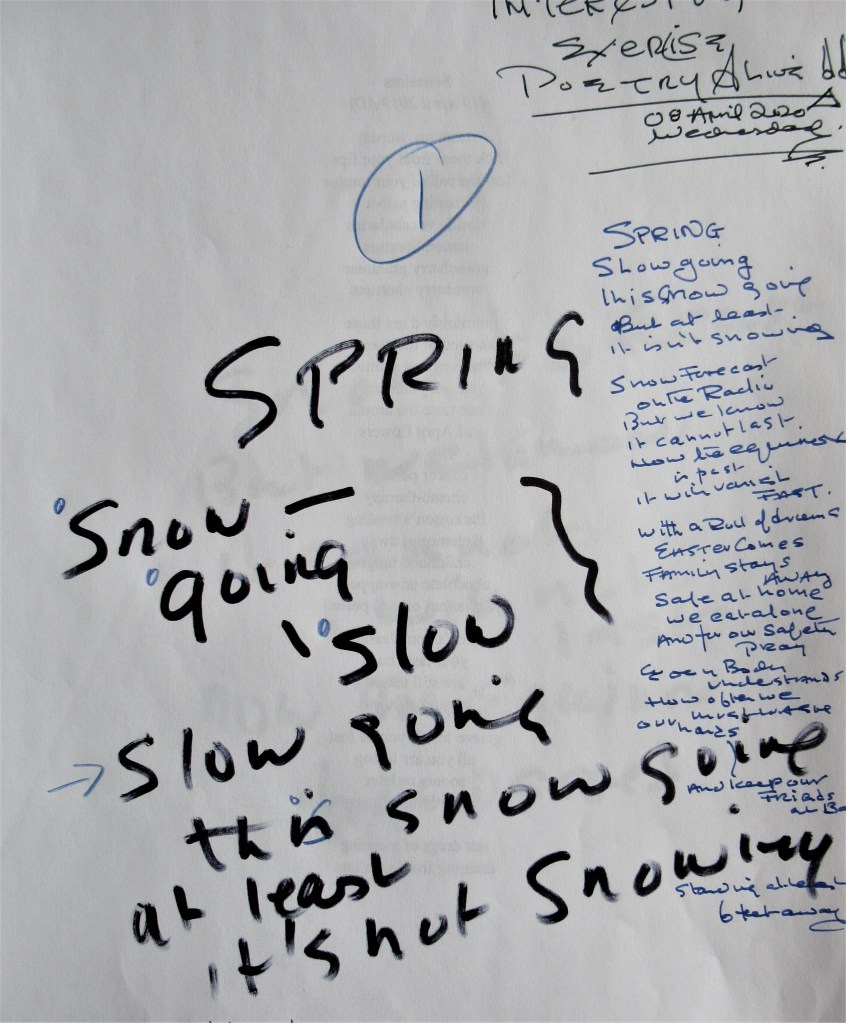 EXERCISE
POETRY ALIVE
08 April 2020
Wednesday
1
SPRING
Snow —
going
slow
slow going
this snow going
at least
it's not snowing
SPRING
Slow going
this snow going
But at least
it isn't snowing
Snow Forecast
on the Radio
But we know
it cannot last.
Now the equinox
is past
it will vanish
FAST.
With a Roll of drums
EASTER Comes
Family stays
AWAY
Safe at home
we eat alone
And for our safety
PRAY
Every Body
understands
How often we
must wash
our hands
And keep our
FRIENDS
at
Standing at least
6 feet away